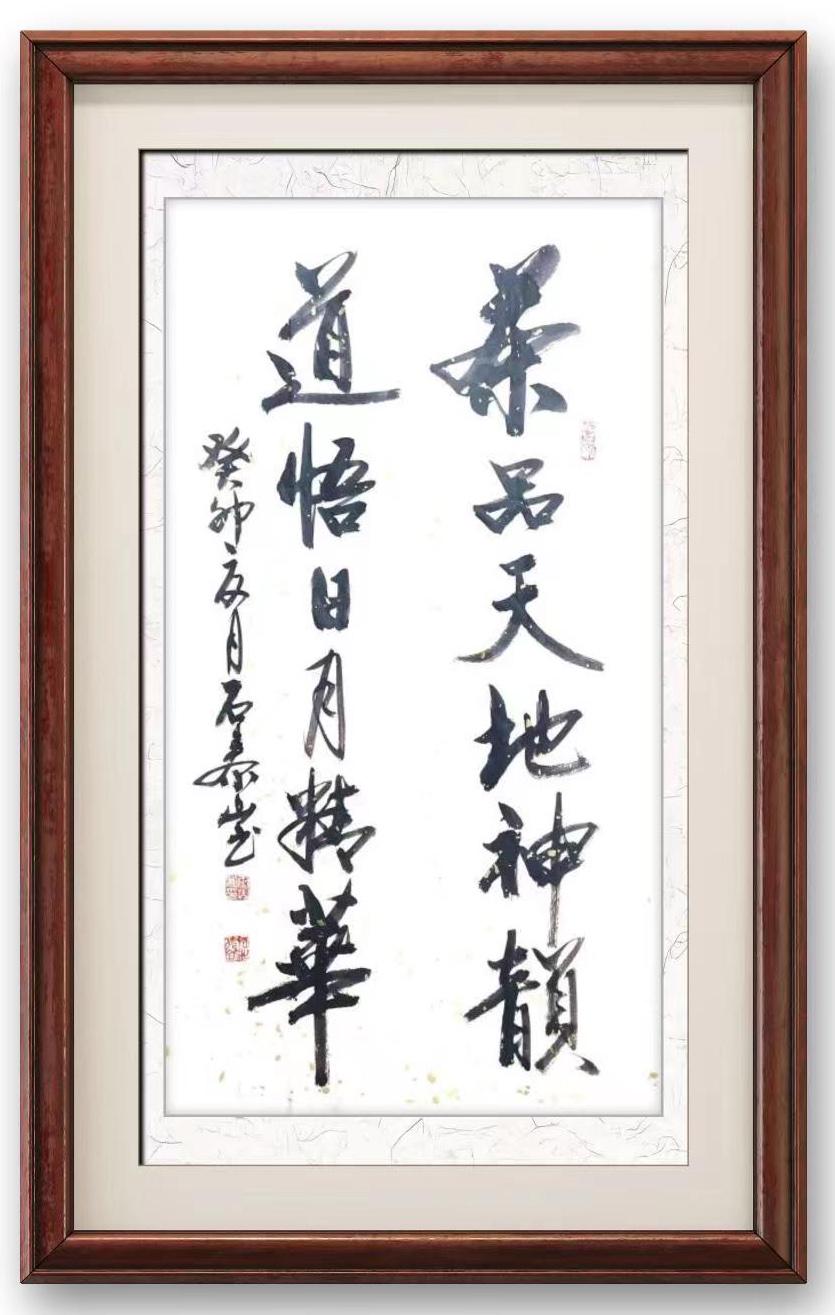 茶品天地神韻
道悟日月精華
癸卯亥月石泰岩